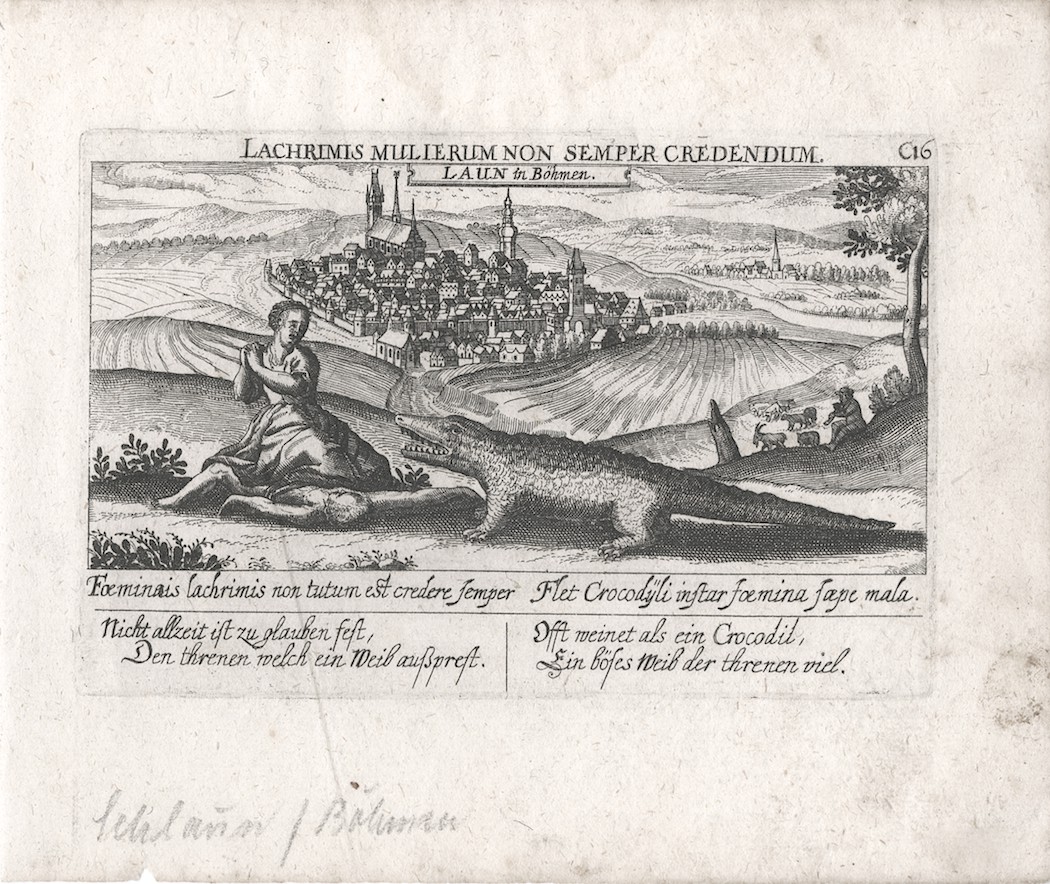 LACHRIMIS MULIERUM NON SEMPER CREDENDUM.
C16
LAUN in Böhmen.
Fœmineis lachrimis non tutum est credere semper
Flet Crocodÿli instar fœmina sæpe mala.
Nicht allzeit ist zu glauben fest,
Den threnen welch ein Weib außprest.
Offt weinet als ein Crocodil,
Ein böses Weib der threnen viel.
/ Böhmen